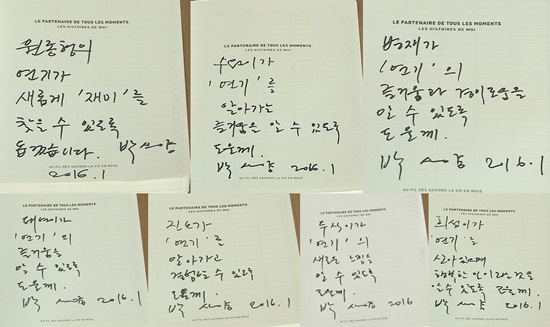 LE PARTENAIRE DE TOUS LES MOMENTS
LES HISTOIRES DE MOI
원종형의
연기가
새롭게 '재미'를
찾을 수 있도록
돕겠습니다. 박
2016. 1
AU FIL DES SAISONS LA VIE EN ROSE
LE PARTENAIRE DE TOUS LES MOMENTS
LES HISTOIRES DE MOI
'연기'를
알아가는
즐거움을 알 수 있도록
도울께.
박 2016. 1
AU FIL DES SAISONS LA VIE EN ROSE
LE PARTENAIRE DE TOUS LES MOMENTS
LES HISTOIRES DE MOI
병재가
'연기'의
즐거움과 경이로움을
알 수 있도록
도울께.
박 2016. 1
AU FIL DES SAISONS LA VIE EN ROSE
LE PARTENAIRE DE TOUS LES MOMENTS
LES HISTOIRES DE MOI
'연기'의
즐거움을
알 수 있도록
도울께.
박 2016. 1
AU FIL DES SAISONS LA VIE EN ROSE
LE PARTENAIRE DE TOUS LES MOMENTS
LES HISTOIRES DE MOI
'연기'를
알아가고
경험할 수 있도록
도울께.
박 2016. 1
AU FIL DES SAISONS LA VIE EN ROSE
LE PARTENAIRE DE TOUS LES MOMENTS
LES HISTOIRES DE MOI
두식이가
'연기'의
새로운 느낌을
알 수 있도록
도울께.
박 2016
LE PARTENAIRE DE TOUS LES MOMENTS
LES HISTOIRES DE MOI
희섭이가
'연기'는
행복한 일이라는 것을
알 수 있도록 도울께.
박 2016. 1
AU FIL DES SAISONS LA VIE EN ROSE